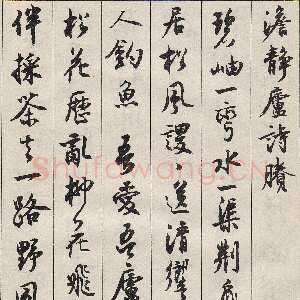 澹静廬詩賸
碧岫一弯水一渠荆
居松風謖 送清響
人釣魚 吾愛吾廬
松花歷亂柳花飛
伴採茶去一路野
Shufawang.CN